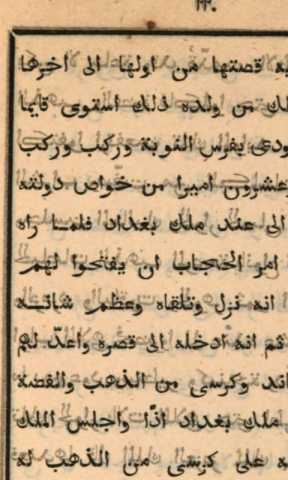 ٢٢٠
قصتها من اولها الى اخرها
من ولده ذلك استوى قايما
بفرس النوبة وركب وركب
وعشرون اميرا من خواص دولته
الى عند ملك بغداد فلمــا راه
امر الحجاب ان يفتحوا لهم
انه نزل وتلقاه وعظم شانــه
ثم انه ادخله الى قصره واعدّ لهم
وكرسى من الذهب والفضة
ملك بغداد اذًا واجلس الملك
على كرسى من الذهب له